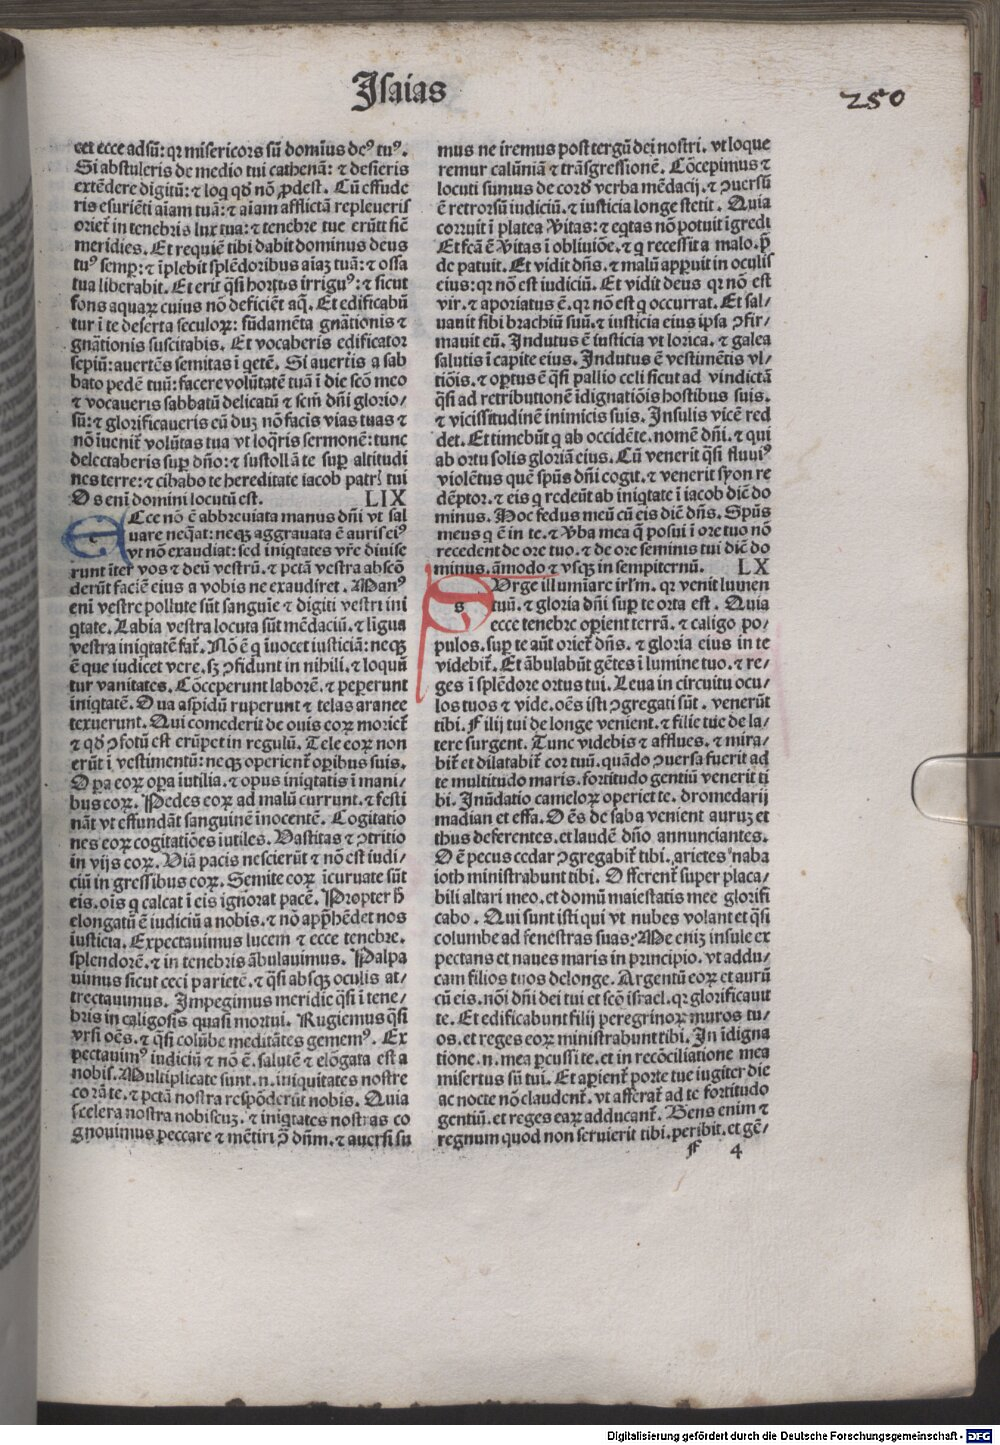 Isaias
250
cet ecce adsū: qꝛ misericors sū domīus deꝰ tuꝰ.
Si abstuleris de medio tui cathenā: ⁊ desieris
extēdere digitū: ⁊ loq̄ qḋ nō ꝓdest. Cū effude
ris esuriēti aīam tuā: ⁊ aīam afflictā repleueris
orieť in tenebris lux tua: ⁊ tenebre tue erūt sic̄
meridies. Et requiē tibi dabit dominus deus
tuꝰ semꝑ: ⁊ īplebit splēdoribus aīaꝫ tuā: ⁊ ossa
tua liberabit. Et erit q̄si hortus irriguꝰ: ⁊ sicut
fons aquaꝝ cuius nō deficiēt aq̄. Et edificabū
tur ī te deserta seculoꝝ: fūdamēta gnātionis ⁊
gnātionis suscitabis. Et vocaberis edificator
sepiū: auertēs semitas ī q̇etē. Si auert̄is a sab
bato pedē tuū: facere volūtatē tuā ī die scō meo
⁊ vocaueris sabbatū delicatū ⁊ scm̄ dn̄i glorio/
sū: ⁊ glorificaueris eū duꝫ nō facis vias tuas ⁊
nō īueniť volūtas tua vt loq̄ris sermonē: tunc
delectaberis suꝑ dn̄o: ⁊ sustollā te suꝑ altitudi
nes terre: ⁊ cibabo te hereditate iacob patrꝭ tui
Os enī domini locutū est. LIX
ECce nō ē abbreuiata manus dn̄i vt sal
uare neq̄at: neqꝫ aggrauata ē auris eiꝰ
vt nō exaudiat: sed iniq̇tates vr̄e diuise
runt īter vos ⁊ deū vestrū. ⁊ pctā vestra abscō
derūt faciē eius a vobis ne exaudiret. Manꝰ
enī vestre pollute sūt sanguīe ⁊ digiti vestri ini
q̇tate. Labia vestra locuta sūt mēdaciū. ⁊ līgua
vestra iniq̇tatē fať. Nō ē q̇ īuocet iusticiā: neqꝫ
ē que iudicet vere. sꝫ ꝯfidunt in nihili. ⁊ loquū
tur vanitates. Cōceperunt laborē. ⁊ peperunt
iniq̇tatē. Oua aspidū ruperunt ⁊ telas aranee
texuerunt. Qui comederit de ouis eoꝝ morieť
⁊ qḋ ꝯfotū est erūpet in regulū. Tele eoꝝ non
erūt ī vestimentū: neqꝫ operienť oꝑibus suis.
Oꝑa eoꝝ oꝑa īutilia. ⁊ opus iniq̇tatis ī mani/
bus eoꝝ. Pedes eoꝝ ad malū currunt. ⁊ festi
nāt vt effundāt sanguinē inocentē. Cogitatio
nes eoꝝ cogitatiōes īutiles. Vastitas ⁊ ꝯtritio
in vijs eoꝝ. Viā pacis nescierūt ⁊ nō est iudi/
ciū in gressibus eoꝝ. Semite eoꝝ īcuruate sūt
eis. oīs q̇ calcat ī eis ignorat pacē. Propter h̄
elongatū ē iudiciū a nobis. ⁊ nō appͬhēdet nos
iusticia. Expectauimus lucem ⁊ ecce tenebre.
splendorē. ⁊ in tenebris ābulauimus. Palpa
uimus sicut ceci parietē. ⁊ q̄si absqꝫ oculis at/
trectauimus. Impegimus meridie q̄si ī tene/
bris in caligosis quasi mortui. Rugiemus q̄si
vrsi oēs. ⁊ q̄si colūbe meditātes gememꝰ. Ex
pectauimꝰ iudiciū ⁊ nō ē. salutē ⁊ elōgata est a
nobis. Multiplicate sunt .n. iniquitates nostre
corā te. ⁊ pctā nostra respōderūt nobis. Quia
scelera nostra nobiscuꝫ. ⁊ iniq̇tates nostras co
gnouimus peccare ⁊ mētiri ꝯ̄ dn̄m. ⁊ auersi su
mus ne iremus post tergū dei nostri. vt loque
remur calūniā ⁊ trāsgressionē. Cōcepimus ⁊
locuti sumus de cordꝭ verba mēdacij. ⁊ ꝯuersū
ē retrorsū iudiciū. ⁊ iusticia longe stetit. Quia
corruit ī platea v̓itas: ⁊ eq̇tas nō potuit īgredi
Et fcā ē v̓itas ī obliuiōe. ⁊ q̇ recessit a malo. p̄
de patuit. Et vidit dn̄s. ⁊ malū apꝑuit in oculis
eius: qꝛ nō est iudiciū. Et vidit deus qꝛ nō est
vir. ⁊ aporiatus ē. qꝛ nō est q̇ occurrat. Et sal/
uauit sibi brachiū suū. ⁊ iusticia eius ip̄a ꝯfir/
mauit eū. Indutus ē iusticia vt lorica. ⁊ galea
salutis ī capite eius. Indutus ē vestimētis vl/
tiōis. ⁊ oꝑtus ē q̄si pallio celi sicut ad vindictā
q̄si ad retributionē īdignatiōis hostibus suis.
⁊ vicissitudinē inimicis suis. Insulis vicē red
det. Et timebūt q̇ ab occidēte. nomē dn̄i. ⁊ qui
ab ortu solis gloriā eius. Cū venerit q̄si fluuiꝰ
violētus quē spūs dn̄i cogit. ⁊ venerit syon re
dēptor. ⁊ eis q̇ redeūt ab iniq̇tate ī iacob diē do
minus. Hoc fedus meū cū eis diē dn̄s. Spūs
meus q̇ ē in te. ⁊ v̓ba mea q̄ posui ī ore tuo nō
recedent de ore tuo. ⁊ de ore seminis tui diē do
minus. āmodo ⁊ vsqꝫ in sempiternū. LX
SUrge illumīare irl̄m. qꝛ venit lumen
tuū. ⁊ gloria dn̄i suꝑ te orta est. Quia
ecce tenebre oꝑient terrā. ⁊ caligo po/
pulos. suꝑ te aūt orieť dn̄s. ⁊ gloria eius in te
videbiť. Et ābulabūt gētes ī lumine tuo. ⁊ re/
ges ī splēdore ortus tui. Leua in circuitu ocu/
los tuos ⁊ vide. oēs isti ꝯgregati sūt. venerūt
tibi. Filij tui de longe venient. ⁊ filie tue de la/
tere surgent. Tunc videbis ⁊ afflues. ⁊ mira/
biť et dilatabiť cor tuū. quādo ꝯuersa fuerit ad
te multitudo maris. fortitudo gentiū venerit ti
bi. Inūdatio cameloꝝ operiet te. dromedarij
madian et effa. Oēs de saba venient auruꝫ et
thus deferentes. et laudē dn̄o annunciantes.
Oē pecus cedar ꝯgregabiť tibi. arietes naba
ioth ministrabunt tibi. Offerenť super placa/
bili altari meo. et domū maiestatis mee glorifi
cabo. Qui sunt isti qui vt nubes volant et q̄si
columbe ad fenestras suas? Me eniꝫ insule ex
pectans et naues maris in principio. vt addu/
cam filios tuos delonge. Argentū eoꝝ et aurū
cū eis. nōi dn̄i dei tui et scō israel. qꝛ glorificauit
te. Et edificabunt filij peregrinoꝝ muros tu/
os. et reges eoꝝ ministrabunt tibi. In idigna
tione .n. mea ꝑcussi te. et in recōciliatione mea
misertus sū tui. Et aꝑienť porte tue iugiter die
ac nocte nō claudenť. vt afferať ad te fortitudo
gentiū. et reges eaꝝ adducanť. Gens enim ⁊
regnum quod non seruierit tibi. peribit. et gē/
ff 4
Digitalisierung gefördert durch die Deutsche Forschungsgemeinschaft - DFG